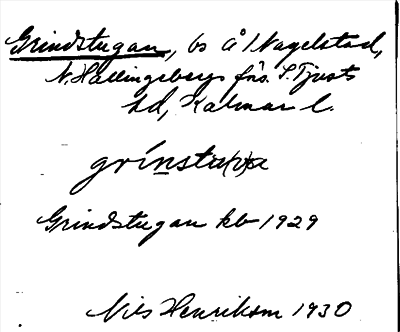 Grindstugan, bs å Nagelstad,
N. Hallingebergs frs. S. Tjusts
hd, Kalmar l.
Grindstugan kb 1929
Nils Henrikson 1930